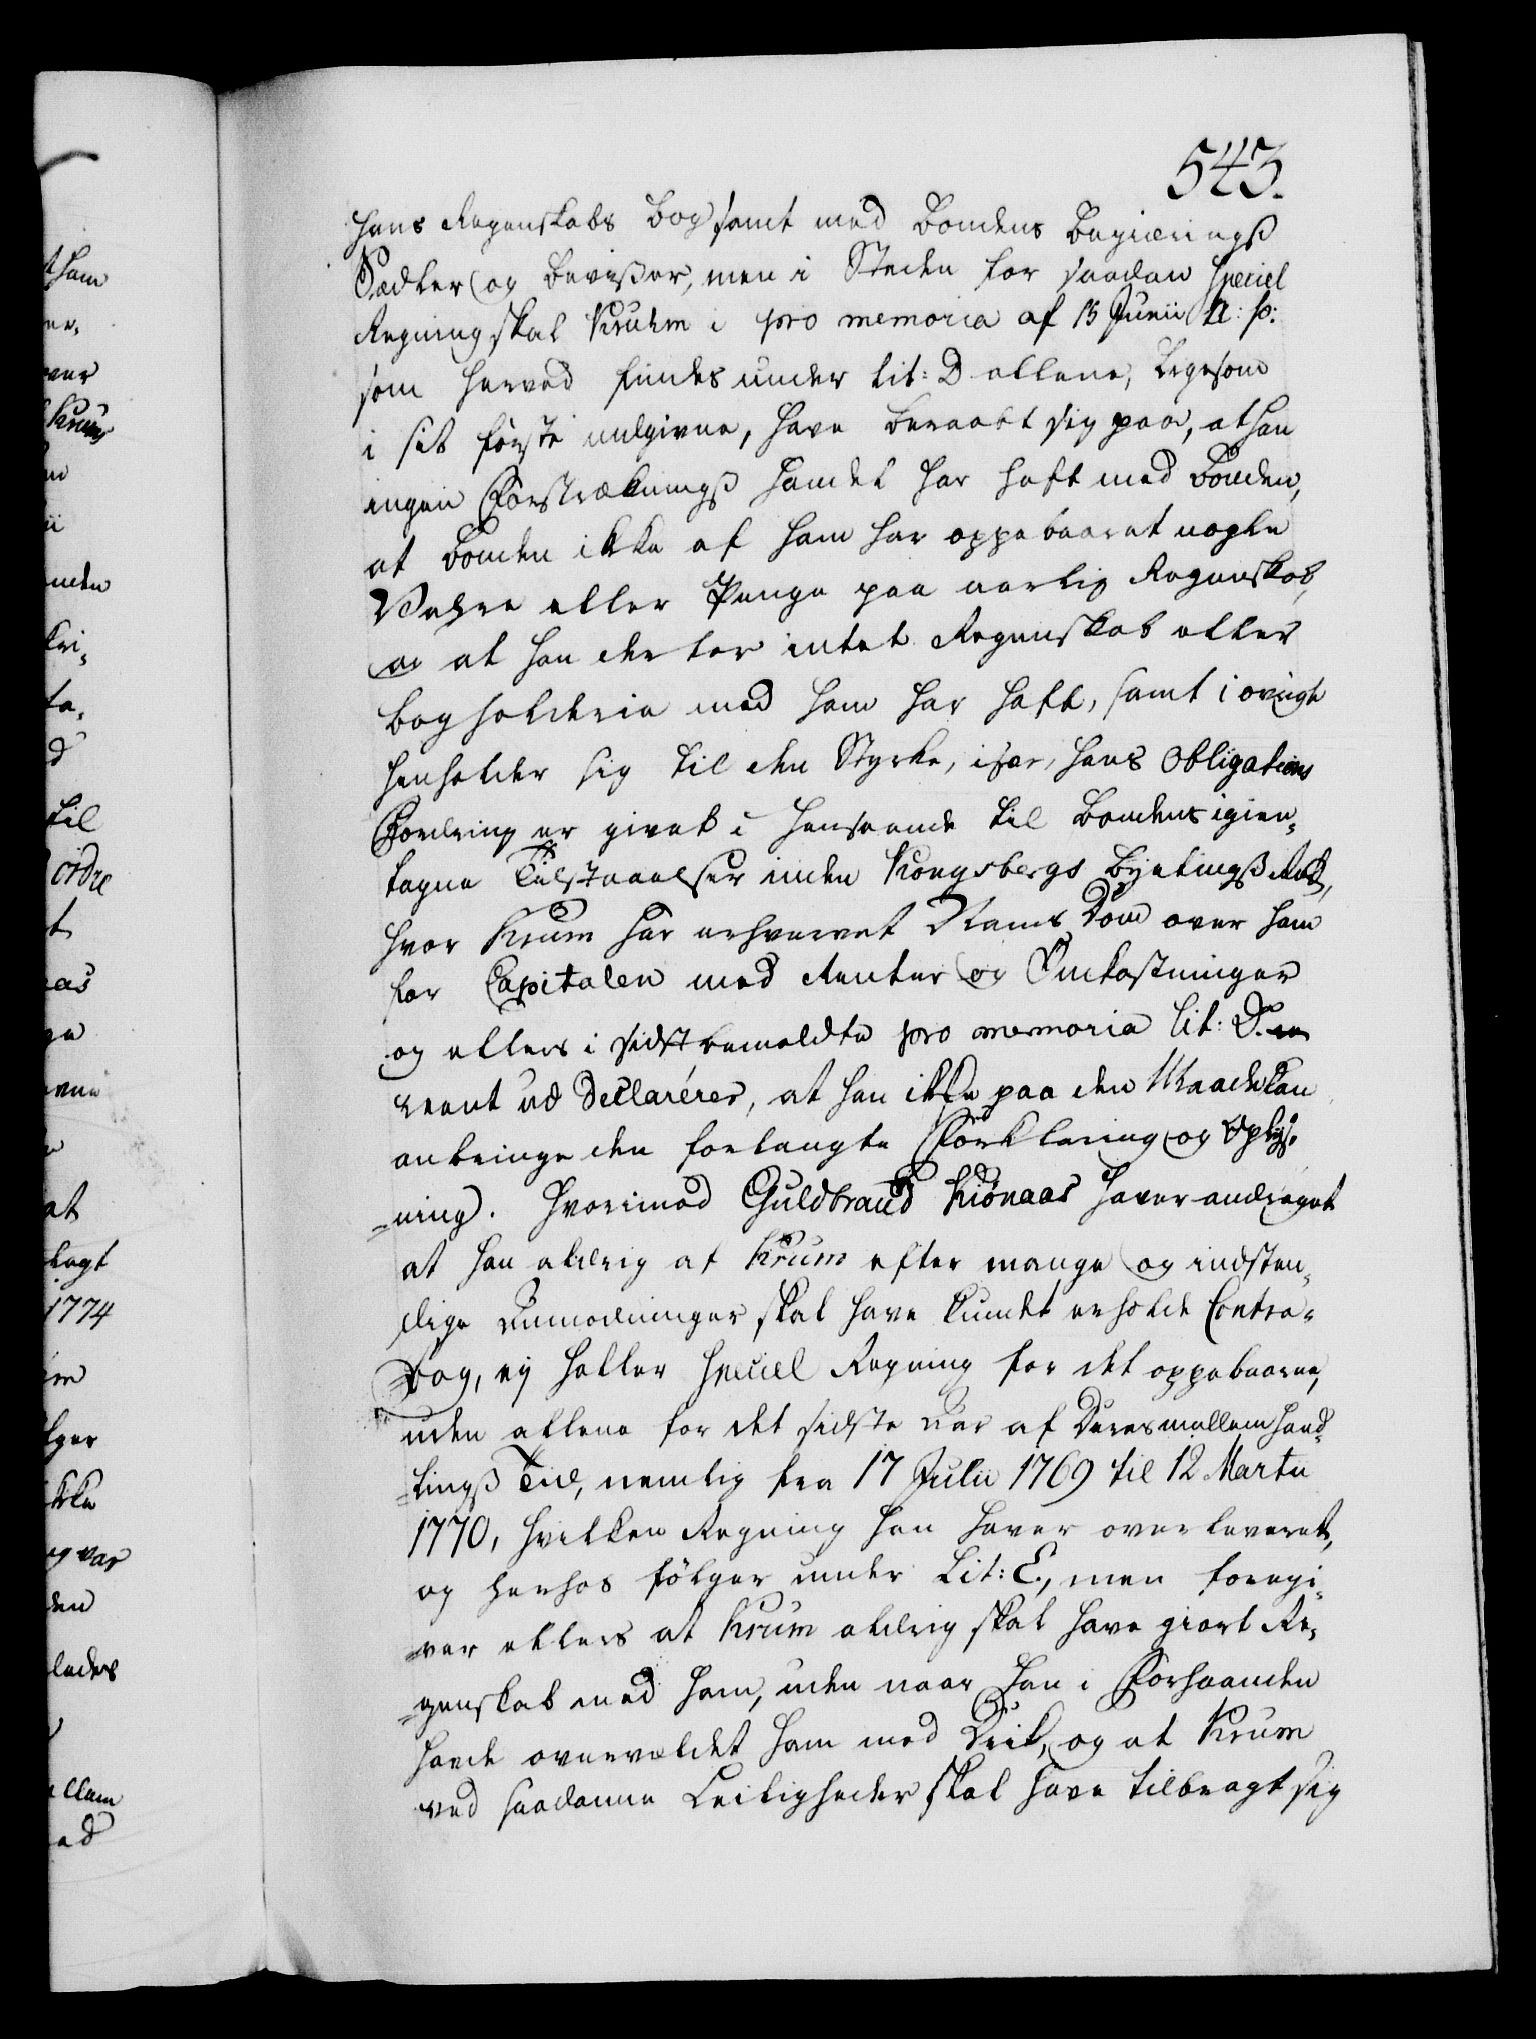 543.
hans Regenskabs bog samt med bondens begiærings
Sædler og beviser, men i Steden for saadan speciel
Regning skal Kruhm i pro memoria af 15 Junii A: p:
som herved findes under Lit: D allene, ligesom
i sit første indgivne, have beraabt sig paa, at han
ingen Forstræknings handel har haft med bonden,
at bonden ikke af ham har oppebaaret nogle
Vahre eller Penge paa aarlig Regenskab,
og at han derfor intet Regenskab eller
bogholderie med ham har haft, samt i øvrigt
henholder sig til den Styrke, især, hans obligations
Fordring er givet i henseende til bondens igien-
tagne Tilstaaelser inden Kongsbergs byetings Ret,
hvor Krum har erhvervet Nams Dom over ham
for Capitalen med Renter og Omkostninger
og ellers i sidstbemeldte pro memoria Lit: D.
reent ud declarérer, at han ikke paa den Maade kan
anbringe den forlangte Forklaring og Oplys-
-ning. Hvorimod Guldbrand Kiønaas haver andraget
at han aldrig af Krum efter mange og indsten-
dige Anmodninger skal have kundet erholde Contra-
Bog, ey heller speciel Regning for det oppebaarne,
uden allene for det sidste Aar af Deres mellem hand-
-lings Tid, nemlig fra 17 Julii 1769 til 12 Martii
1770, hvilken Regning han haver overleveret,
og herhos følger under Lit: E., men foregi-
-ver ellers at Krum aldrig skal have giort Re-
-genskab med ham, uden naar han i Forhaanden
havde overvældet ham med Drik, og at Krum
ved saadanne Leiligheder skal have tilbragt sig